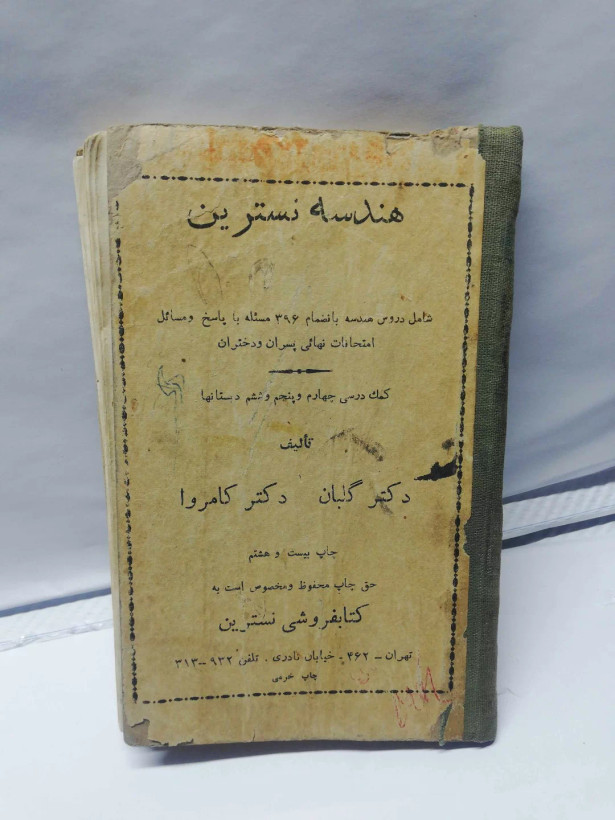 هندسه نسترین
شامل دروس هندسه بانضمام ۳۹۶ مسئله با پاسخ ومسائل
امتحانات نهائی پسران ودختران
کمك درسی چهارم وپنجم وششم دبستانها
تألیف
دکتر گلبان دکتر کامروا
چاپ بیست و هشتم
حق چاپ محفوظ ومخصوص است به
کتابفروشی نسترین
تهران - ۴۶۲ - خیابان نادری . تلفن ۹۳۲-۳۱۳
چاپ خرمی